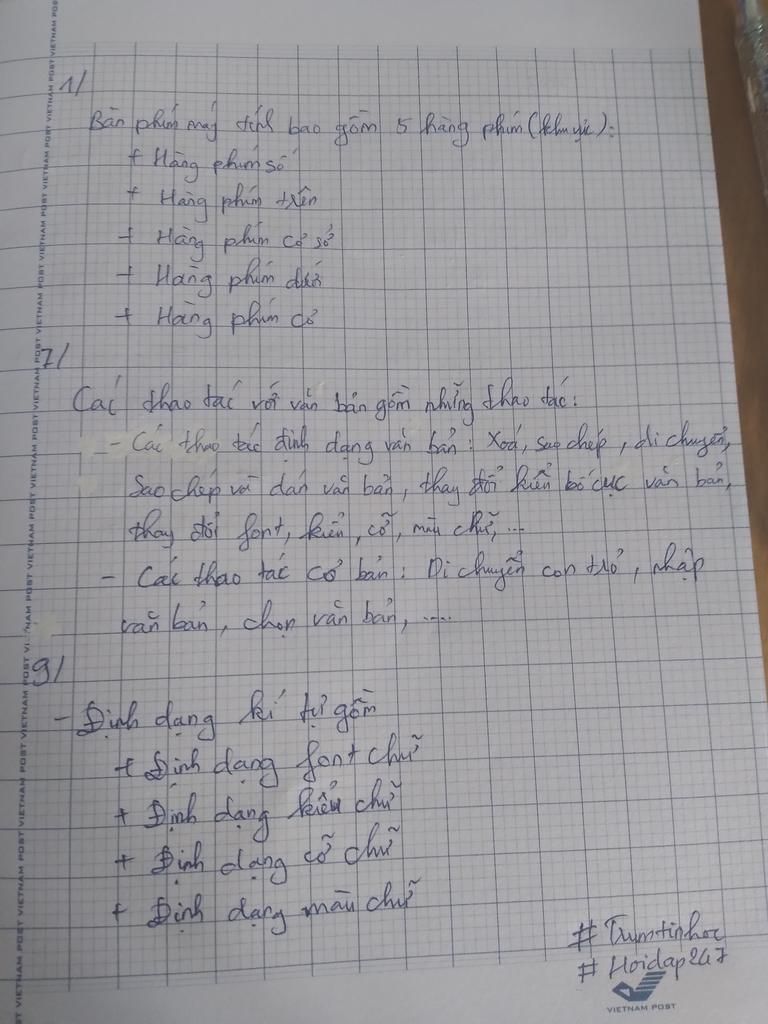 1/
Bàn phím máy tính bao gồm 5 hàng phím (khu vực):
+ Hàng phím số
+ Hàng phím trên
+ Hàng phím cơ sở
+ Hàng phím dưới
+ Hàng phím cơ
7/
Các thao tác với văn bản gồm những thao tác:
- Các thao tác định dạng văn bản: Xoá, sao chép, di chuyển,
Sao chép và dán văn bản, thay đổi kiểu bố cục văn bản,
thay đổi font, kiểu, cỡ, màu chữ, ...
- Các thao tác cơ bản: Di chuyển con trỏ, nhập
văn bản, chọn văn bản, .....
9/
- Định dạng kí tự gồm
+ Định dạng font chữ
+ Định dạng kiểu chữ
+ Định dạng cỡ chữ
+ Định dạng màu chữ
# Trumtinhoc
# Hoidap247
VIETNAM POST
VIETNAM POST VIETNAM POST VIETNAM POST VIETNAM POST VIETNAM POST VIETNAM POST VIETNAM POST